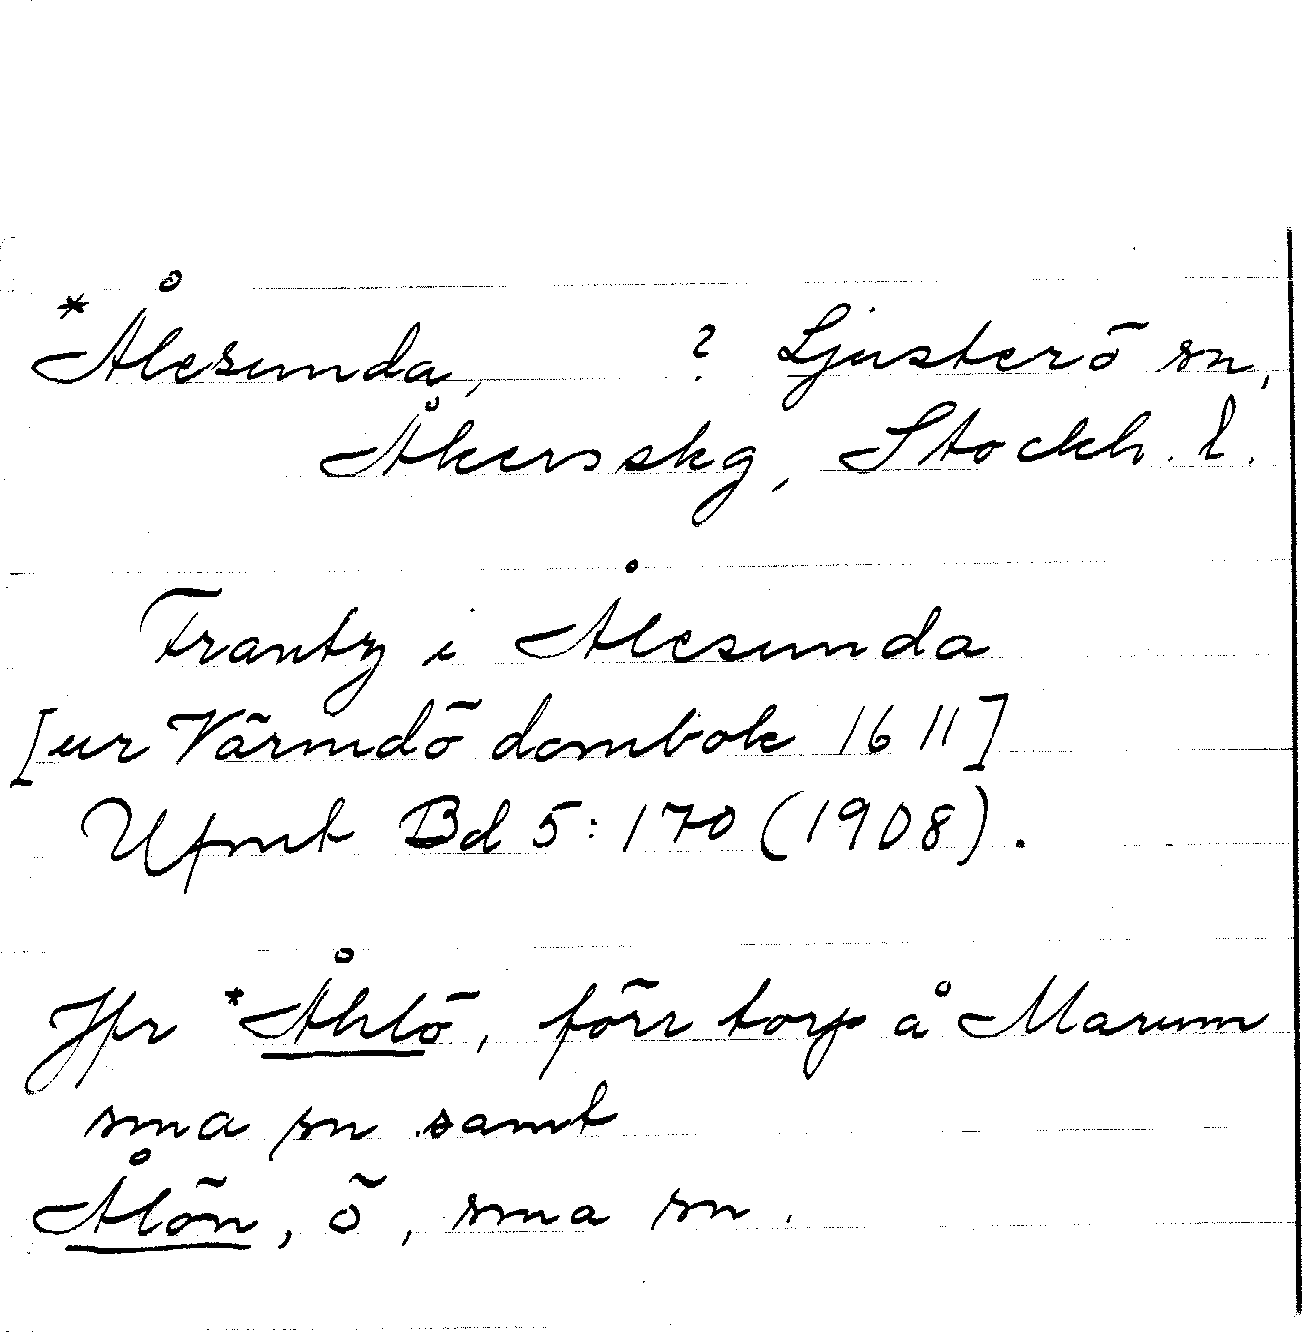 *Ålesunda, ? Ljusterö sn,
Åkers skg, Stockh. l.
Frantz i Ålesunda
[ur Värmdö dombok 1611]
Upmt Bd 5:170 (1908).
Jfr *Åhlö, förr torp å Marum
sma sn samt
Ålön, ö, sma sn.